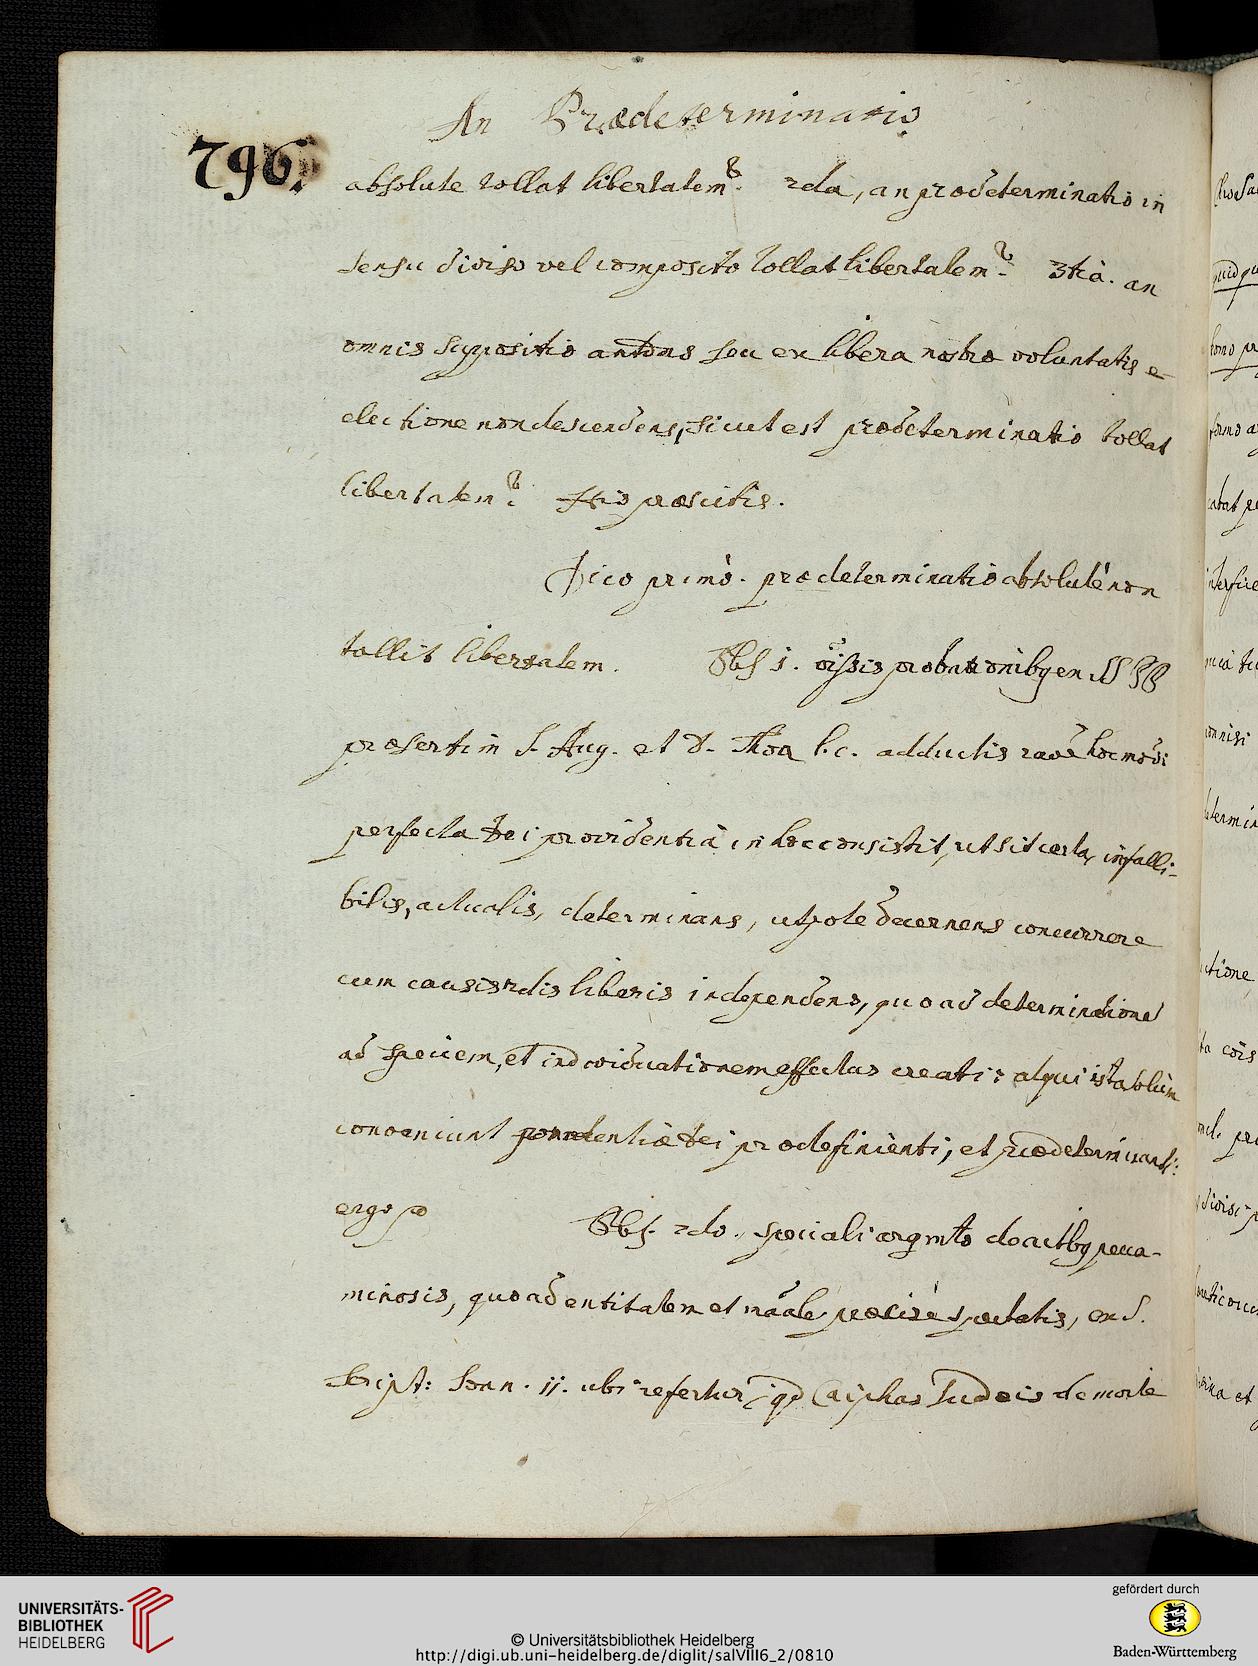 An Prædeterminatio
796.
absolute tollat libertatem? 2da, an prædeterminatio in
sensu diviso vel composito tollat libertatem? 3tia. an
omnis suppositio antcdns seu ex libera nostræ voluntatis e-
electione non descendens, sicut est prædeterminatio tollat
libertatem? His præscitis.
Dico primò. prædeterminatio absolutè non
tollit libertatem. Pbr 1. oissis probationibg ex SS PP
præsertim S. Aug. et D. Thoa l.c. adductis raoe hocmodi
perfecta Dei providentia in hoc consistit, ut sit certa, infalli-
bilis, actualis, determinans, utpote decernens concurrere
cum causis 2dis liberis independens, quo ad determinatione
ad speciem, et individuationem effectus creati: atqui ista solùm
conveniunt Dei prædefinienti, et prædeterminanti:
ergo
Pbr. 2do. speciali argmto de actbg pecca-
minosis, quo ad entitatem et naale præcisè spectatis, ex S.
Script: Joan. 11. ubi refertur, qd Caiphas Judæis de morte
UNIVERSITÄTS-
BIBLIOTHEK
HEIDELBERG
© Universitätsbibliothek Heidelberg
http://digi.ub.uni-heidelberg.de/diglit/salVIII6_2/0810
gefördert durch
Baden-Württemberg